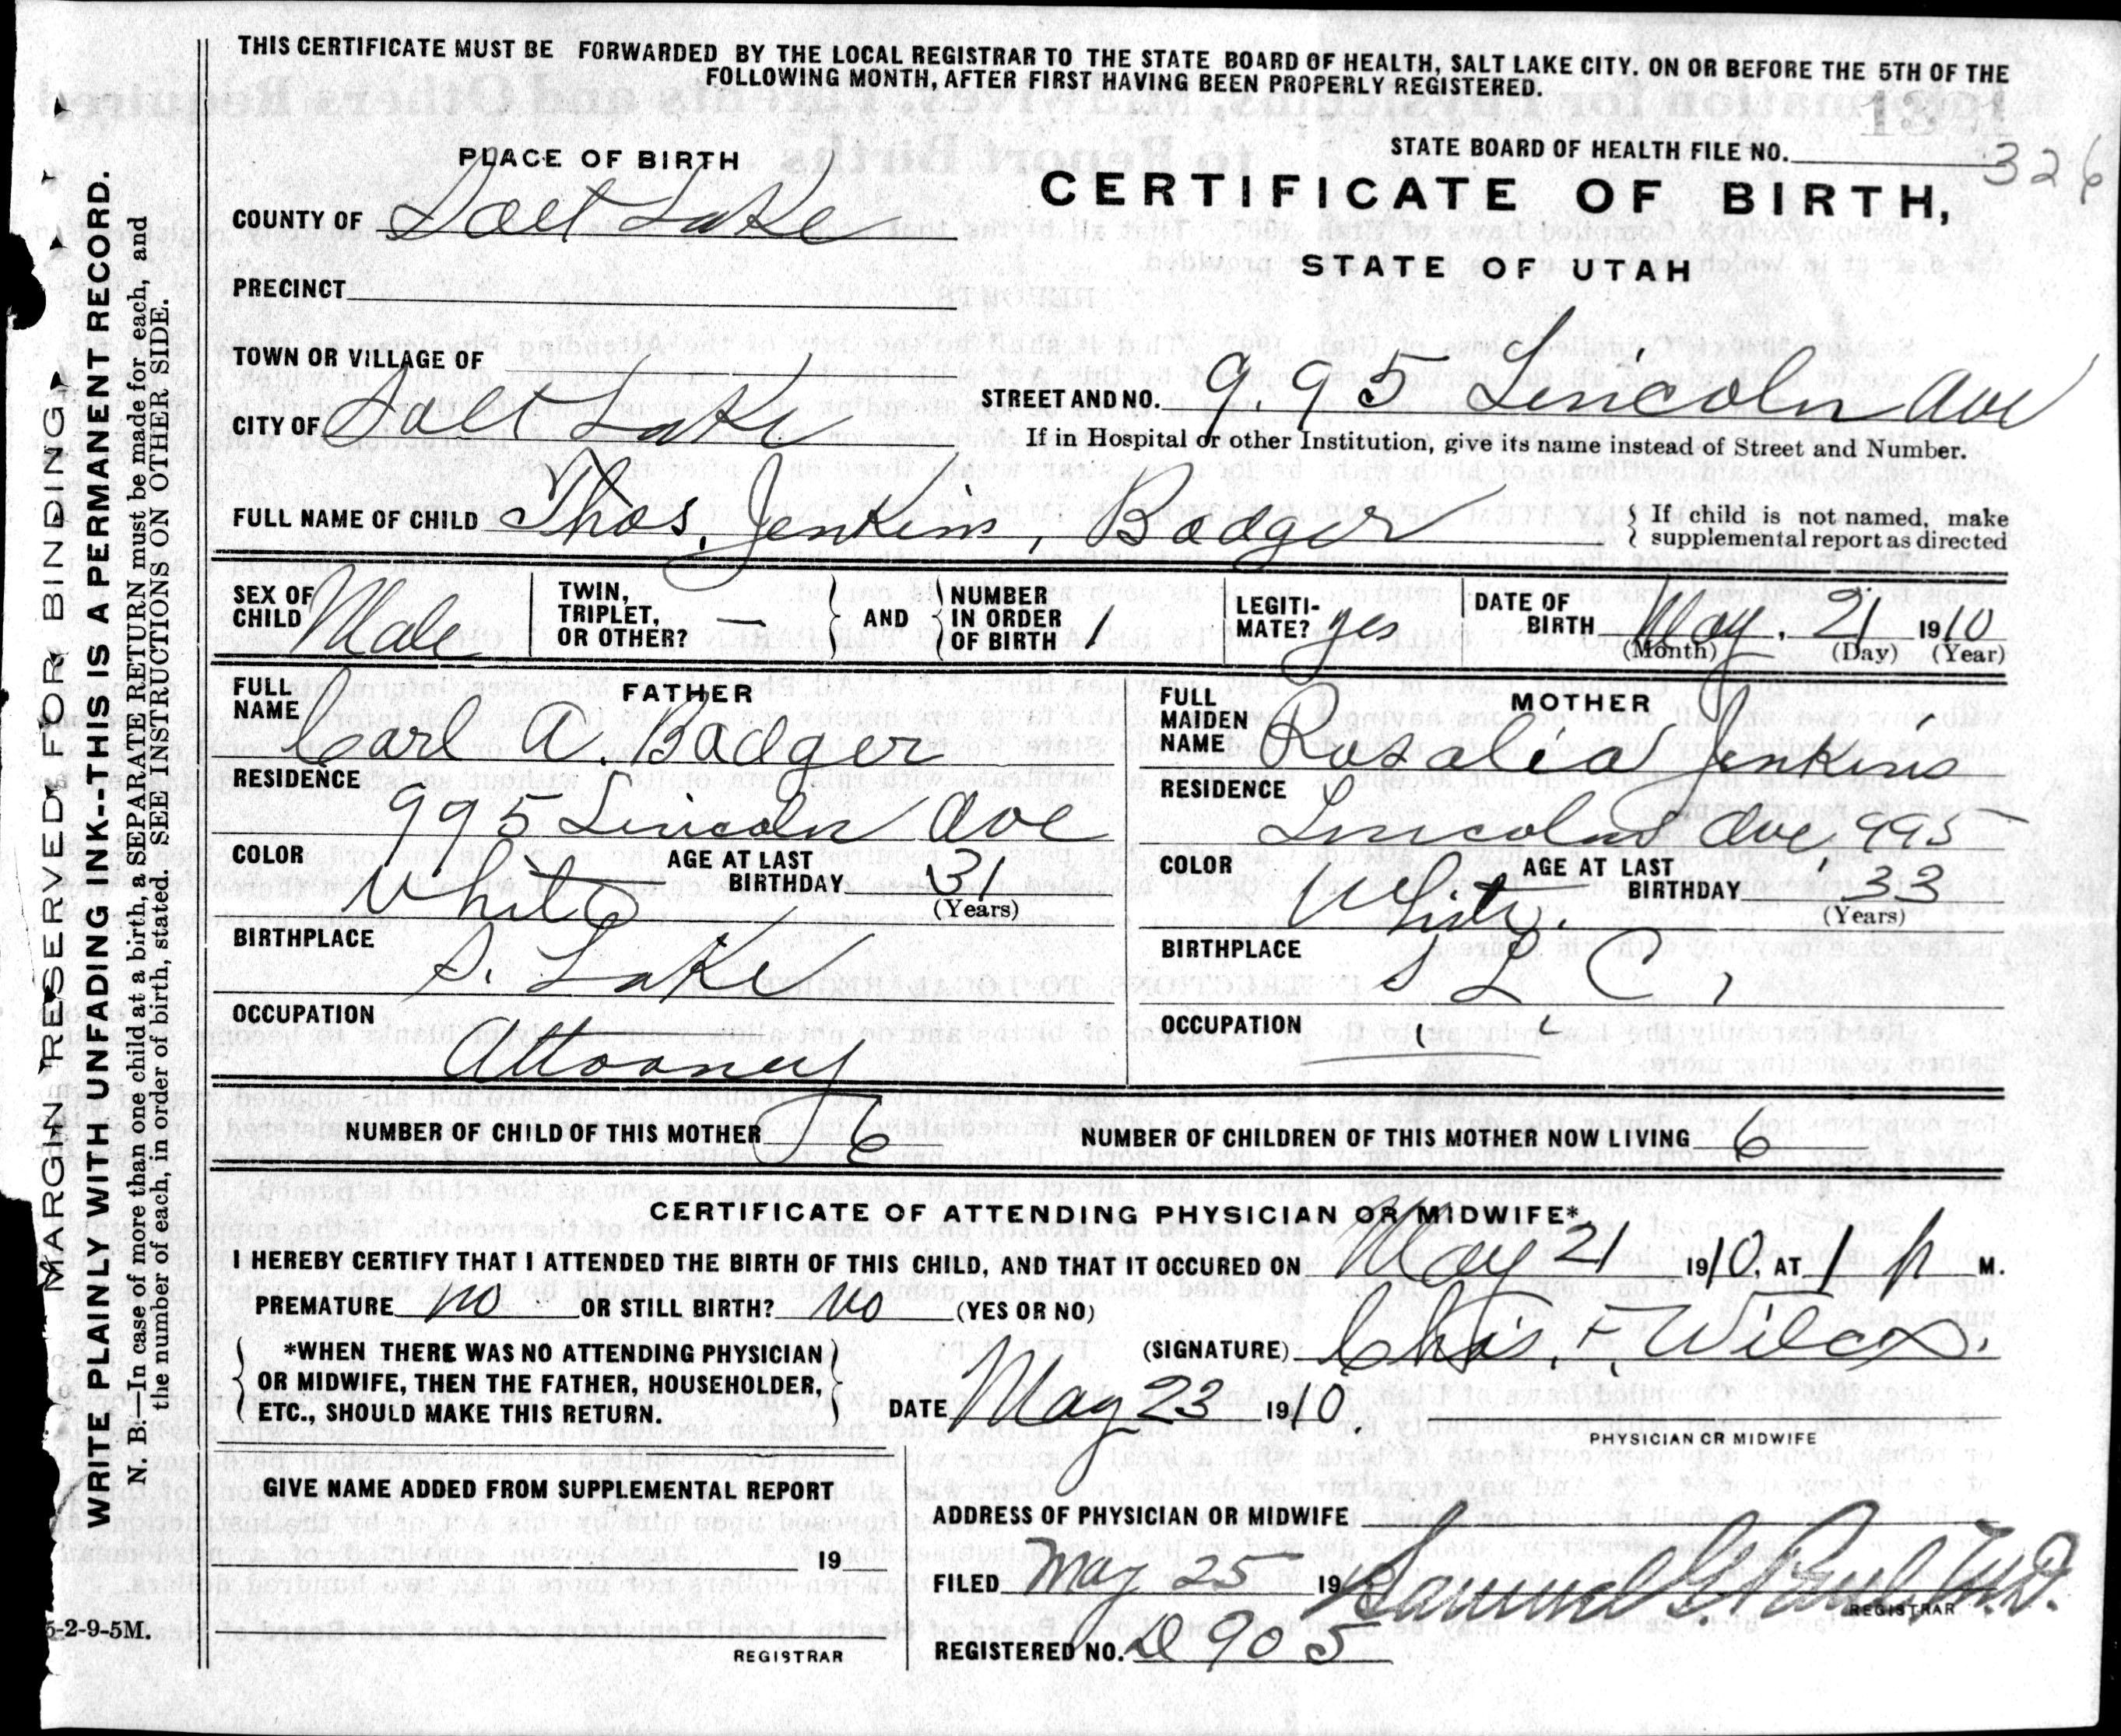 THIS CERTIFICATE MUST BE FORWARDED BY THE LOCAL REGISTRAR TO THE STATE BOARD OF HEALTH, SALT LAKE CITY. ON OR BEFORE THE 5TH OF THE
FOLLOWING MONTH, AFTER FIRST HAVING BEEN PROPERLY REGISTERED.
STATE BOARD OF HEALTH FILE NO. 326
PLACE OF BIRTH
CERTIFICATE OF BIRTH,
STATE OF UTAH
COUNTY OF Salt Lake
PRECINCT
TOWN OR VILLAGE OF
CITY OF Salt Lake
STREET AND NO. 995 Lincoln Ave
If in Hospital or other Institution, give its name instead of Street and Number.
FULL NAME OF CHILD Thos. Jenkins, Badger
If child is not named, make
supplemental report as directed
SEX OF CHILD Male
TWIN, TRIPLET, OR OTHER? —
AND
NUMBER IN ORDER OF BIRTH 1
LEGITI-MATE? yes
DATE OF BIRTH May. 21 1910
(Month) (Day) (Year)
FATHER
FULL NAME Carl A. Badger
RESIDENCE 995 Lincoln Ave
COLOR White
AGE AT LAST BIRTHDAY 31
(Years)
BIRTHPLACE S. Lake
OCCUPATION Attorney
MOTHER
FULL MAIDEN NAME Rosalia Jenkins
RESIDENCE Lincoln Ave 995
COLOR White.
AGE AT LAST BIRTHDAY 33
(Years)
BIRTHPLACE S L C,
OCCUPATION
NUMBER OF CHILD OF THIS MOTHER 6
NUMBER OF CHILDREN OF THIS MOTHER NOW LIVING 6
CERTIFICATE OF ATTENDING PHYSICIAN OR MIDWIFE*
I HEREBY CERTIFY THAT I ATTENDED THE BIRTH OF THIS CHILD, AND THAT IT OCCURED ON May 21 1910, AT 1 P M.
PREMATURE no OR STILL BIRTH? No (YES OR NO)
*WHEN THERE WAS NO ATTENDING PHYSICIAN
OR MIDWIFE, THEN THE FATHER, HOUSEHOLDER,
ETC., SHOULD MAKE THIS RETURN.
(SIGNATURE) Chas. F. Wilcox.
DATE May 23 1910.
PHYSICIAN OR MIDWIFE
GIVE NAME ADDED FROM SUPPLEMENTAL REPORT
19
REGISTRAR
ADDRESS OF PHYSICIAN OR MIDWIFE
FILED May 25 19 Samuel G. Paul, M.D.
REGISTRAR
REGISTERED NO. D 905
MARGIN RESERVED FOR BINDING
WRITE PLAINLY WITH UNFADING INK--THIS IS A PERMANENT RECORD.
N. B.—In case of more than one child at a birth, a SEPARATE RETURN must be made for each, and
the number of each, in order of birth, stated. SEE INSTRUCTIONS ON OTHER SIDE.
5-2-9-5M.